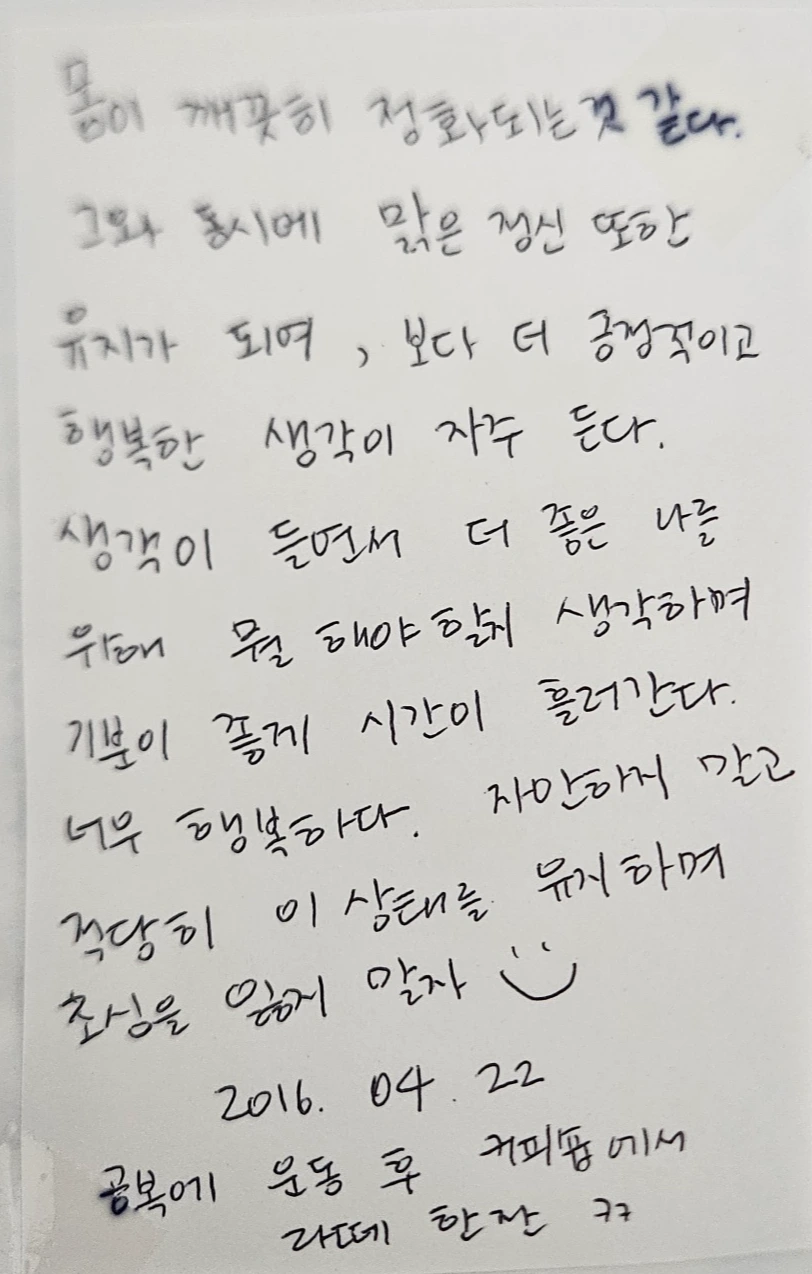 몸이 깨끗히 정화되는것 같다.
그와 동시에 맑은 정신 또한
유지가 되여, 보다 더 긍정적이고
행복한 생각이 자주 든다.
생각이 들면서 더 좋은 나를
위해 뭘 해야할지 생각하며
기분이 좋게 시간이 흘러간다.
너무 행복하다. 자만하지 말고
적당히 이 상태를 유지하며
초심을 잃지 말자
2016. 04. 22
공복에 운동 후 커피숍에서
라떼 한잔 ㅋㅋ